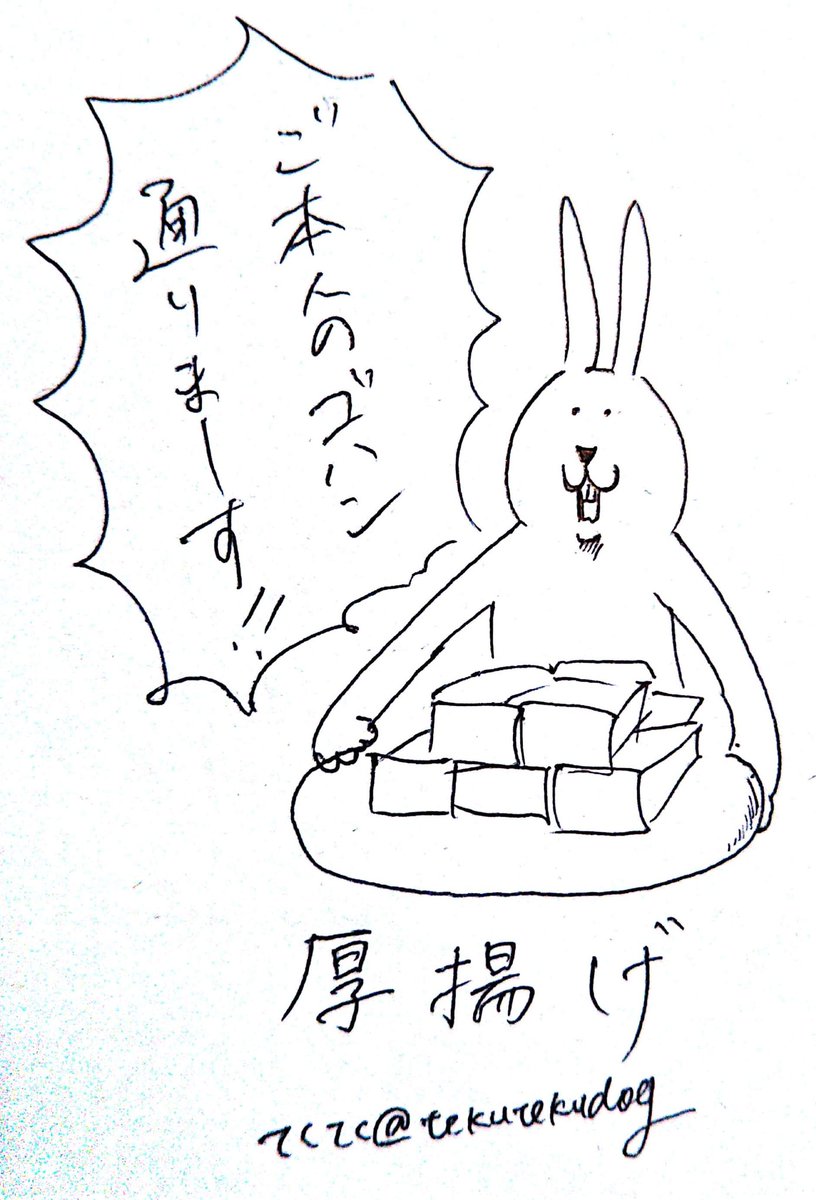 ご本人のゴハン
通りまーす!!
厚揚げ
てくてく@tekutekudog